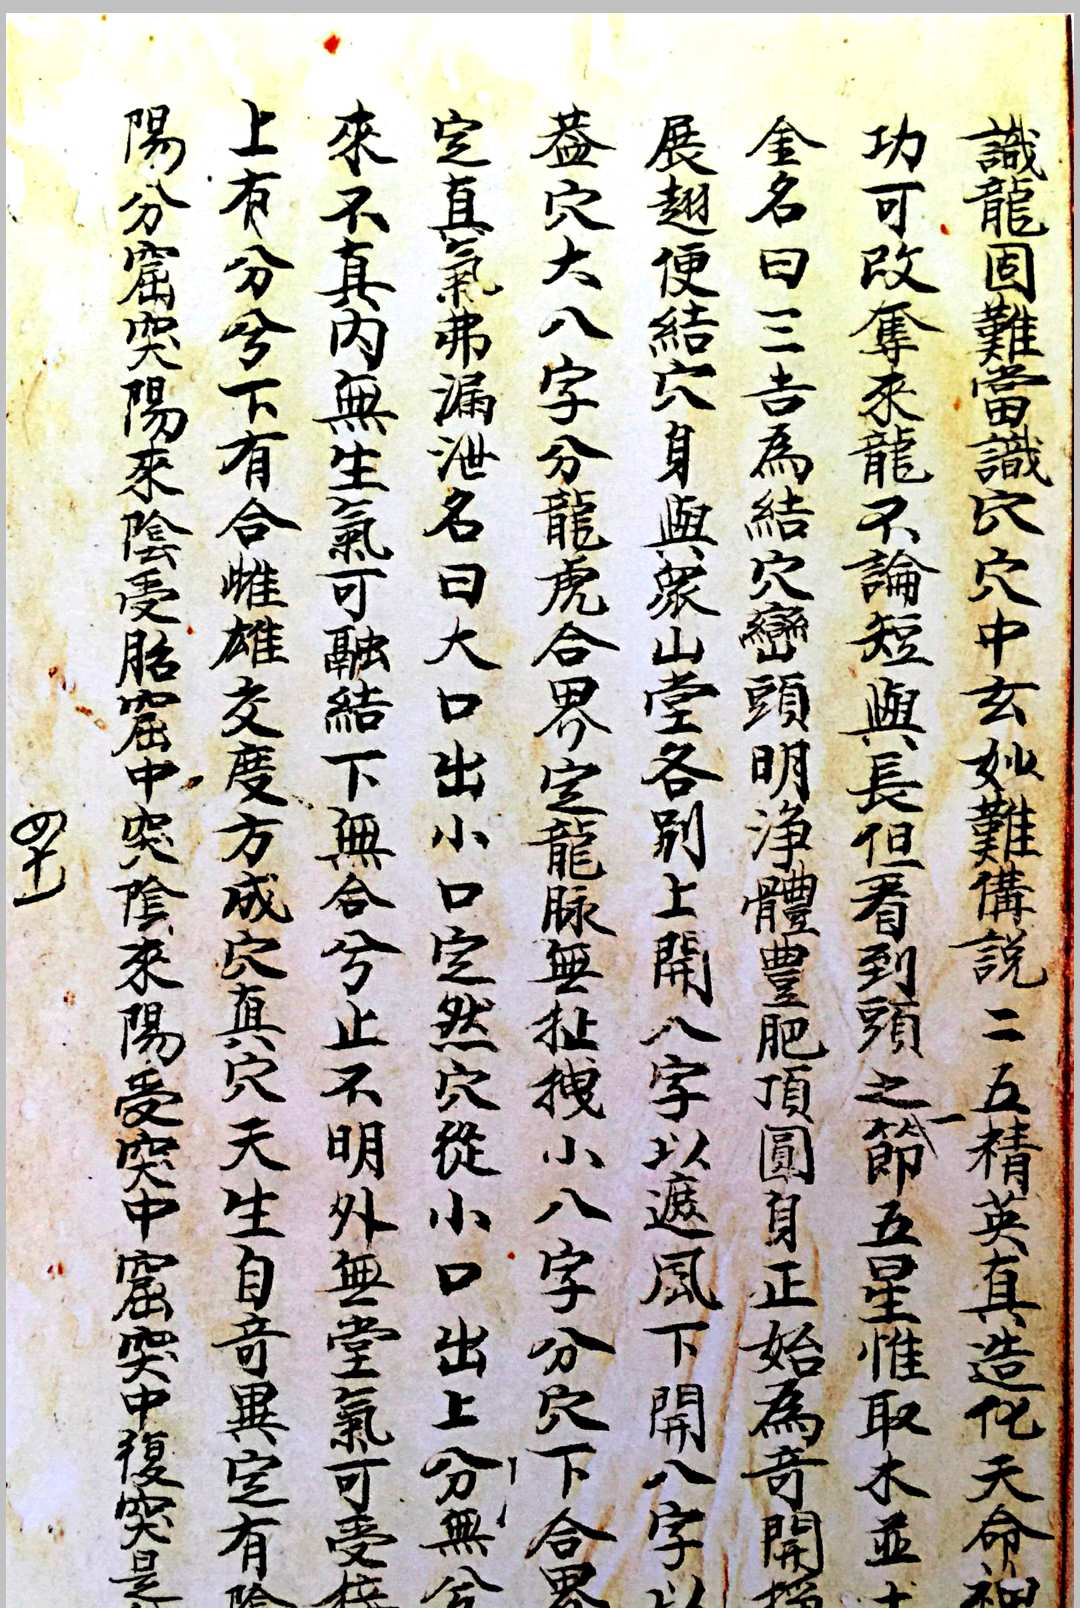 識龍固難當識穴穴中玄妙難講説二五精英真造化天命神
功可改奪來龍不論短與長但看到頭之一節五星惟取木並土
金名曰三吉為結穴巒頭明浄體豊肥頂圓身正始為竒開
展翅便結穴身與衆山堂各别上開八字以遮風下開八字以
葢穴大八字分龍虎合界定龍脉無扯拽小八字分穴下合界
定真氣弗漏泄名曰大口出小口定然穴從小口出上分無兮
來不真内無生氣可融結下無合兮止不明外無堂氣可受接
上有分兮下有合雌雄交度方成穴真穴天生自竒異定有陰
陽分窟突陽來陰受胎窟中突陰來陽受突中窟突中復突是
四十一